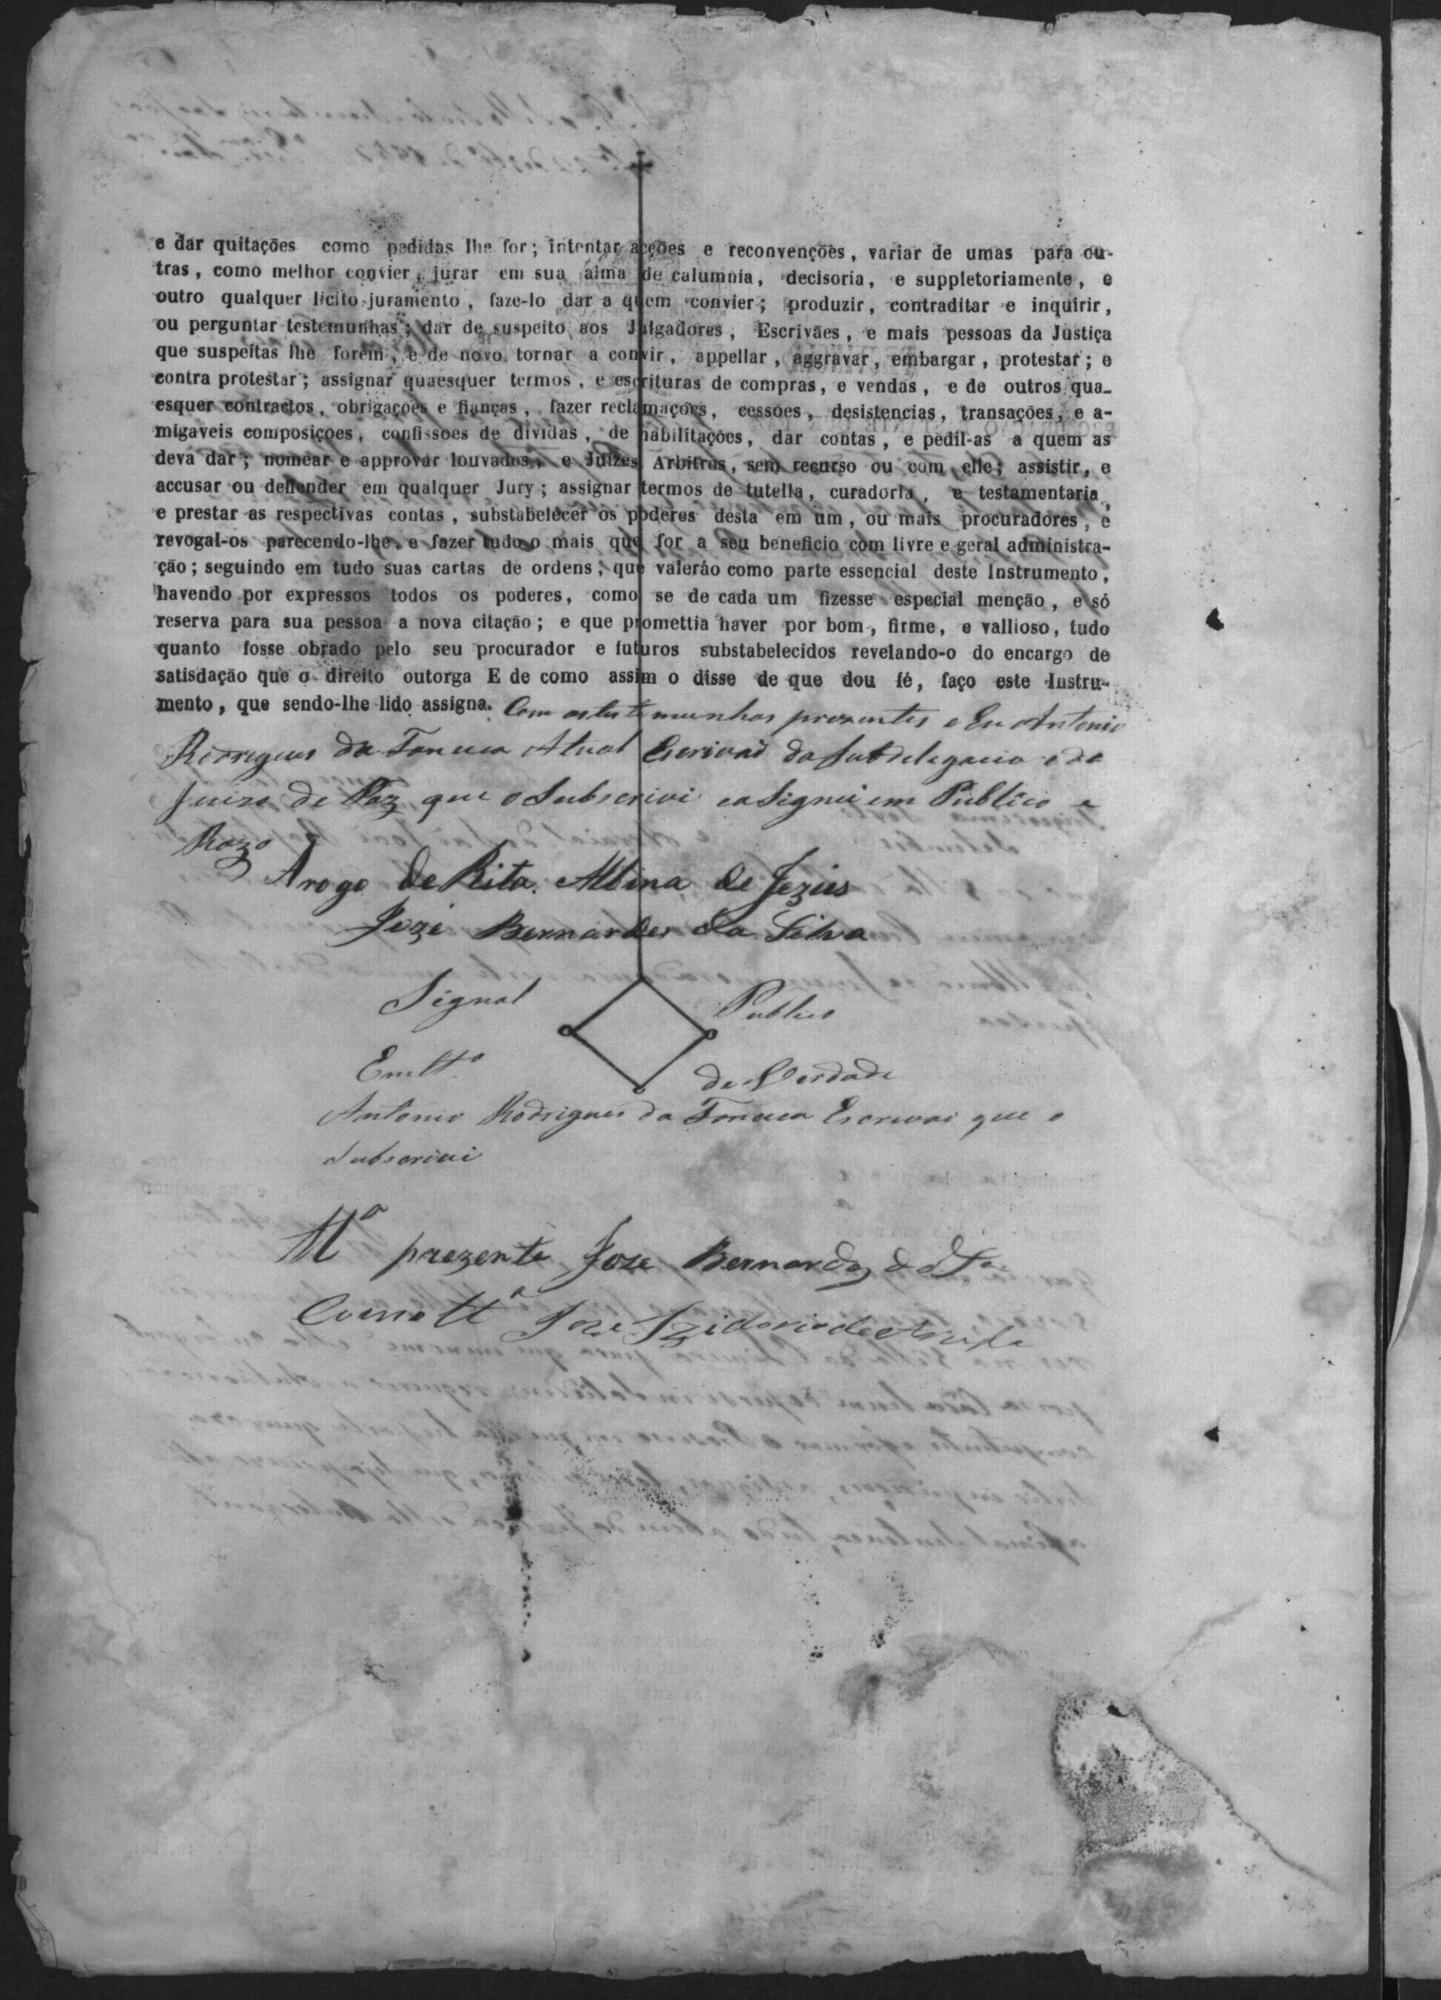 e dar quitações como pedidas lhe for; intentar acções e reconvenções, variar de umas para ou-
tras, como melhor convier, jurar em sua alma de calumnia, decisoria, e suppletoriamente, e
outro qualquer licito juramento, faze-lo dar a quem convier; produzir, contraditar e inquirir,
ou perguntar testemunhas; dar de suspeito aos Julgadores, Escrivães, e mais pessoas da Justiça
que suspeitas lhe forem, e de novo tornar a convir, appellar, aggravar, embargar, protestar; e
contra protestar; assignar quaesquer termos, e escrituras de compras, e vendas, e de outros qua-
esquer contractos, obrigações e fianças, fazer reclamações, cessões, desistencias, transações, e a-
migaveis composições, confissões de dividas, de habilitações, dar contas, e pedil-as a quem as
deva dar; nomear e approvar louvados, e Juizes Arbitros, sem recurso ou com elle; assistir, e
accusar ou deffender em qualquer Jury; assignar termos de tutella, curadoria, e testamentaria,
e prestar as respectivas contas, substabelecer os poderes desta em um, ou mais procuradores, e
revogal-os parecendo-lhe, e fazer tudo o mais que for a seu beneficio com livre e geral administra-
ção; seguindo em tudo suas cartas de ordens, que valeráo como parte essencial deste Instrumento,
havendo por expressos todos os poderes, como se de cada um fizesse especial menção, e só
reserva para sua pessoa a nova citação; e que promettia haver por bom, firme, e vallioso, tudo
quanto fosse obrado pelo seu procurador e futuros substabelecidos revelando-o do encargo de
satisdação que o direito outorga E de como assim o disse de que dou fé, faço este Instru-
mento, que sendo-lhe lido assigna. Com as testemunhas prezentes e Eu Antonio
Rodrigues da Fonceca Atual Escrivaõ da Subdelegacia e do
Juizo de Paz que o Subscrivi e aSignei em Publico e
Razo
Arogo de Rita Albina de Jezus
Jozé Bernardes da Silva
Signal Publico
Em tt.º de Verdade
Antonio Rodrigues da Fonceca Escrivaõ que o
Subscrivi
tt.ª prezente Joze Bernardes da S.ª
Como tt.ª Joze Izidorio de